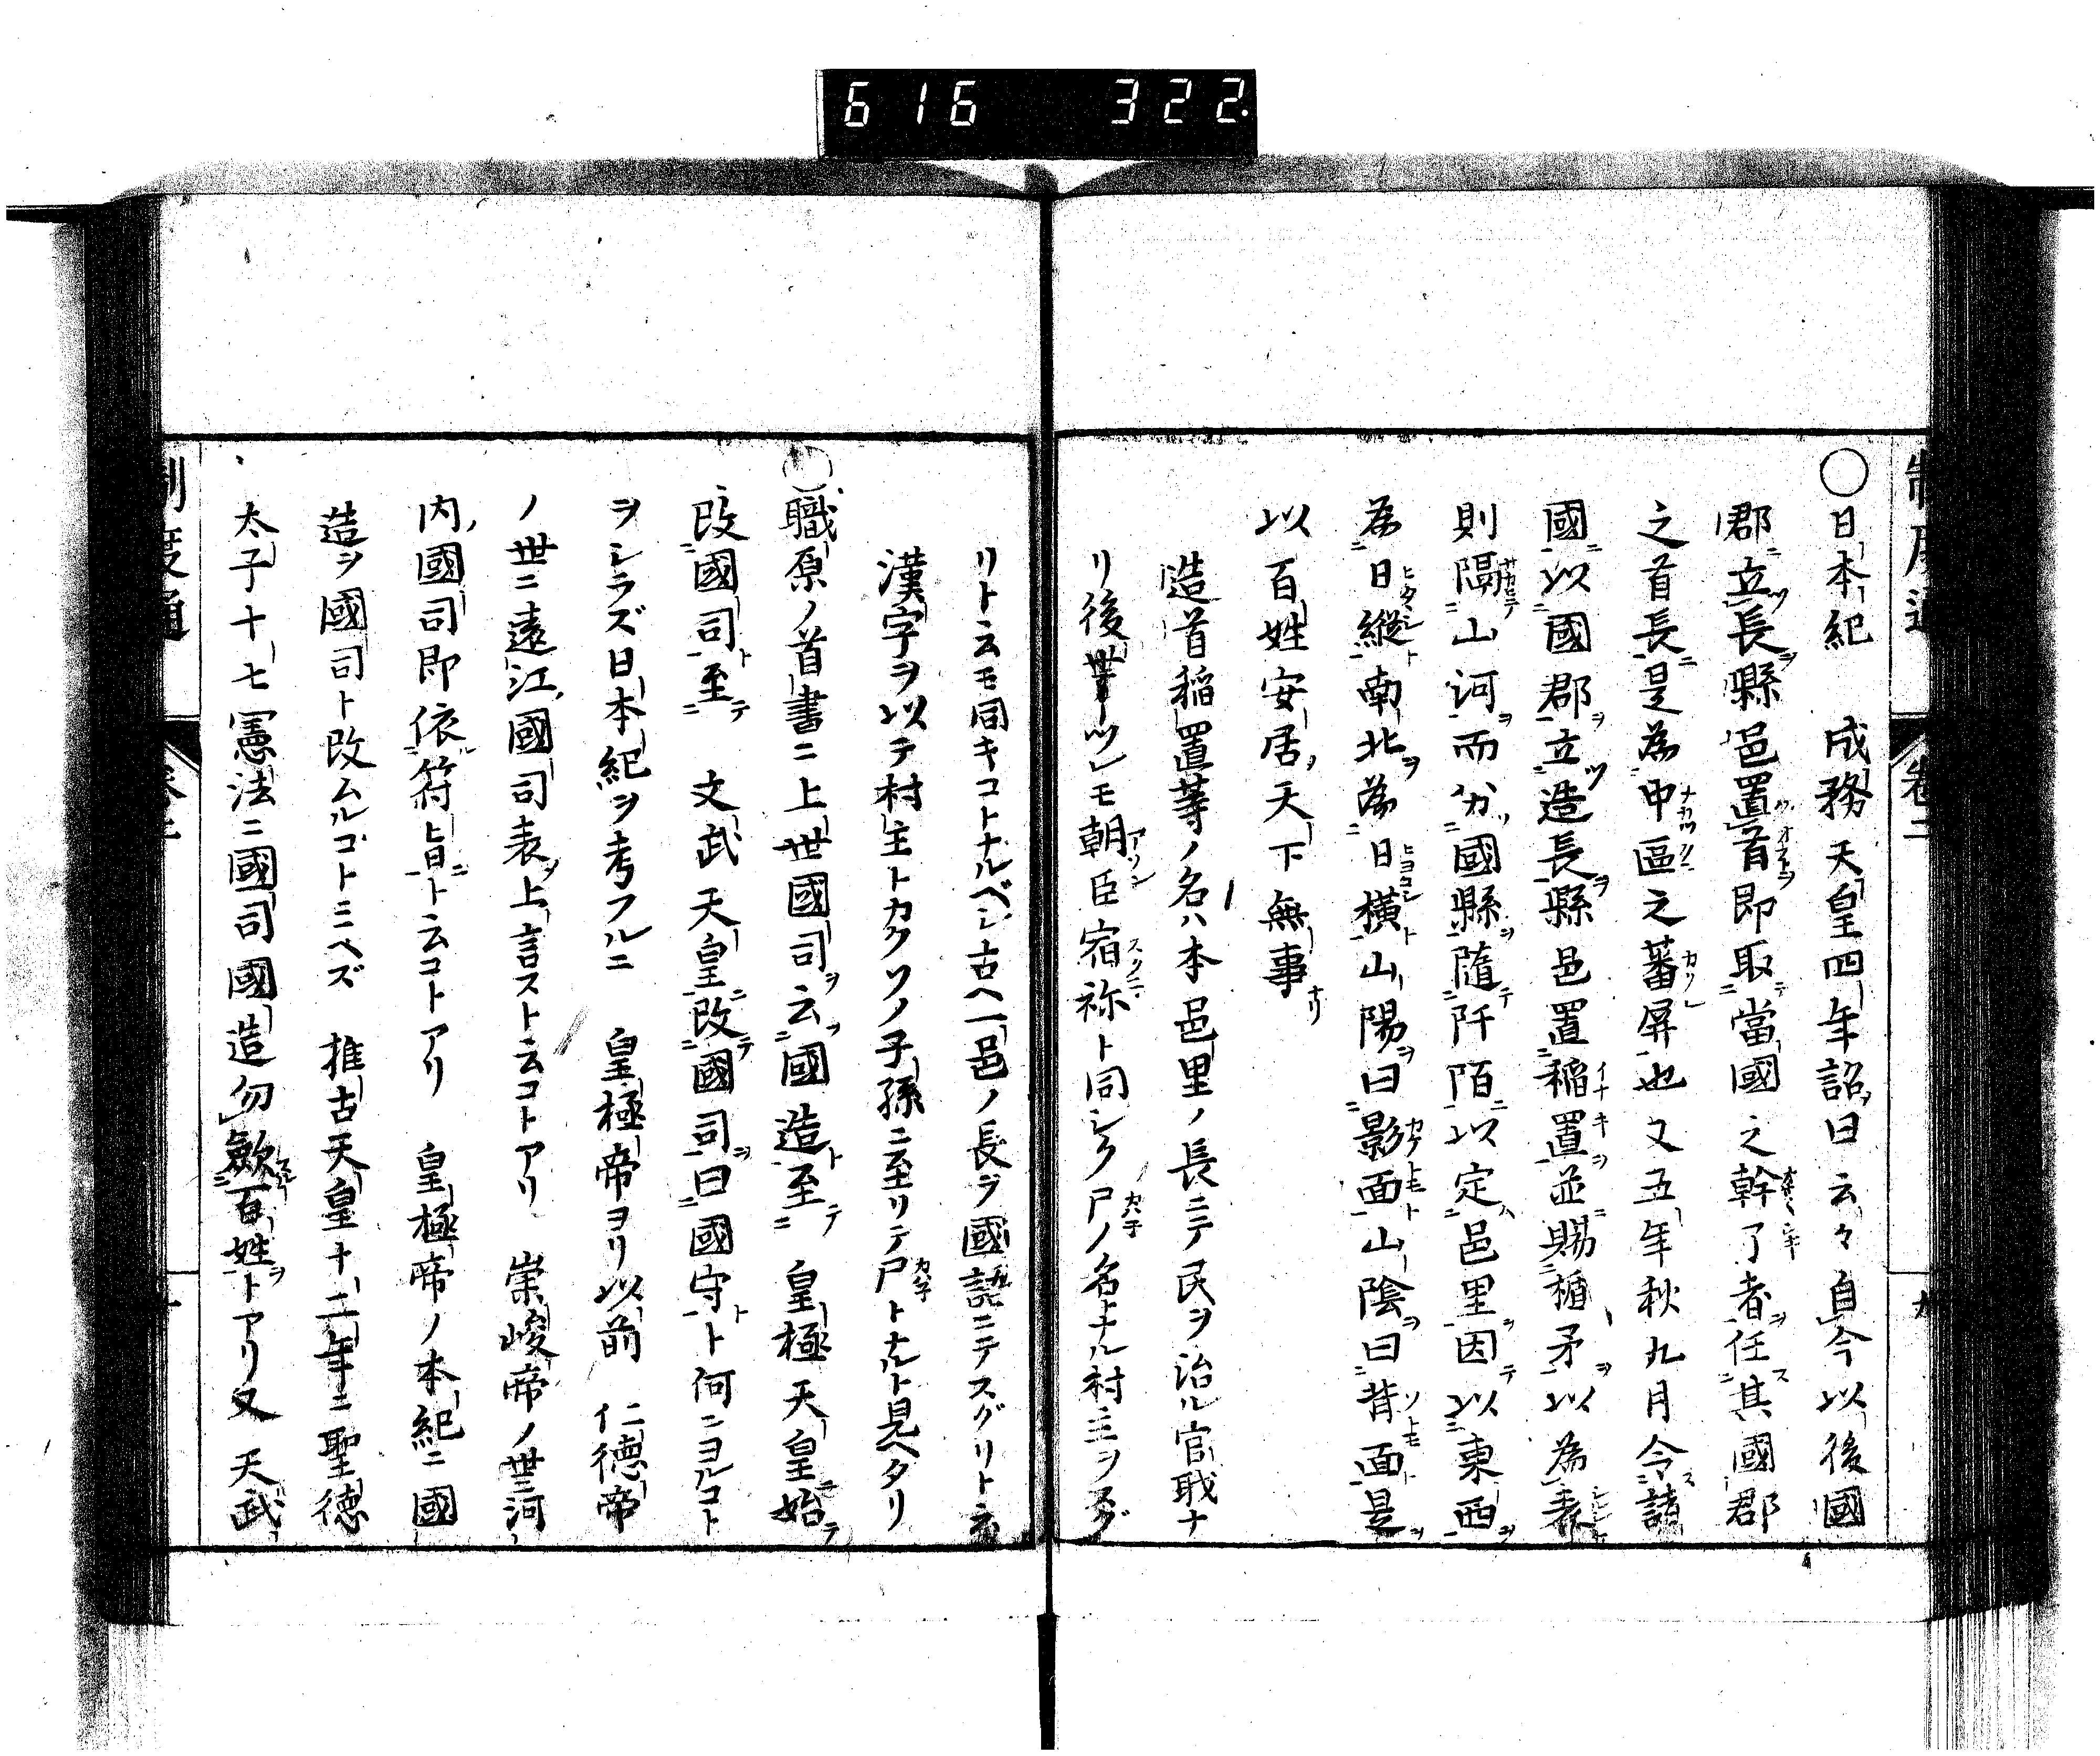 616 322
〇日本紀 成務天皇四年詔曰云々自今以後國
郡立長縣邑置首即取當國之幹了者任其國郡
之首長是為中區之蕃屏也又五年秋九月令諸
國以國郡立造長縣邑置稲置並賜楯矛以為表
則隔山河而分國縣隨阡陌以定邑里因以東西
為日縱南北為日横山陽曰影面山陰曰背面是
以百姓安居天下無事
造首稲置等ノ名ハ本邑里ノ長ニテ民ヲ治ル官職ナ
リ後世ニモ朝臣宿祢ト同シク尸ノ名ナル村主ヲスグ
リト云モ同キコトナルベシ古ヘ一邑ノ長ヲ國語ニテスグリト云
漢字ヲ以テ村主トカクソノ子孫ニ至リテ尸トナルト見ヘタリ
〇職原ノ首書ニ上世國司ヲ云國造ト至テ 皇極天皇始テ
改國司ト至テ 文武天皇ニ改テ國司ヲ曰國守ト何ニヨルコト
ヲシラズ日本紀ヲ考フルニ 皇極帝ヨリ以前 仁德帝
ノ世ニ遠江國司表上言スト云コトアリ 崇峻帝ノ世ニ河
内國司即依符旨ト云コトアリ 皇極帝ノ本紀ニ國
造ヲ國司ト改ムルコトミヘズ 推古天皇十二年ニ聖徳
太子十七憲法ニ國司國造勿歛百姓トアリ又 天武
制度通
卷二